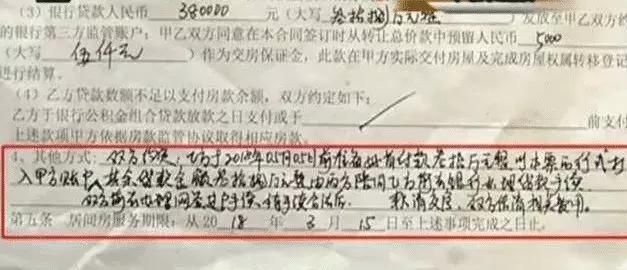 (3) 银行贷款人民币 380000 元(大写 叁拾捌万元整 )发放至甲乙双方约
的银行第三方监管账户;甲乙双方同意在本合同签订时从转让总价款中预留人民币 5000
(大写 伍仟元 )作为交房保证金,此款在甲方实际交付房屋及完成房屋权属转移登记
进行结算。
(4)乙方贷款数额不足以支付房款余额,双方约定如下:
乙方于银行公积金组合贷款放款之日支付或于 前支付
上述款项甲方依据房款监管协议取得相应房款。
4、其他方式: 双方约定:乙方于2018年05月05日前 首付款叁拾万元整以 形式打
入甲方账中,其余贷款金额叁拾捌万元整由 方陪同乙方 银行办理贷款手续
双方 办理 手续,待手续合法后,
第五条 居间房服务期限:从 2018 年 3 月 15 日至上述事项完成之日止。